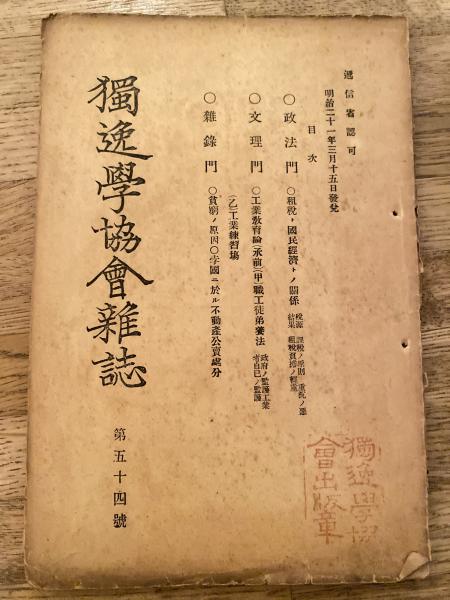 遞信省認可
明治二十一年三月十五日發兌
目次
○政法門 ○租稅ト國民經濟トノ關係 稅源 課稅ノ原則 重稅ノ惡
結果 租稅負擔ノ輕重
○文理門 ○工業敎育論(承前)(甲)職工徒弟養法 政府ノ監護工業
者自己ノ監護
(乙)工業練習塲
○雜錄門 ○貧窮ノ原因○孛國ニ於ル不動產公賣處分
獨逸學協會雜誌
第五十四號
獨逸學協
會出版章